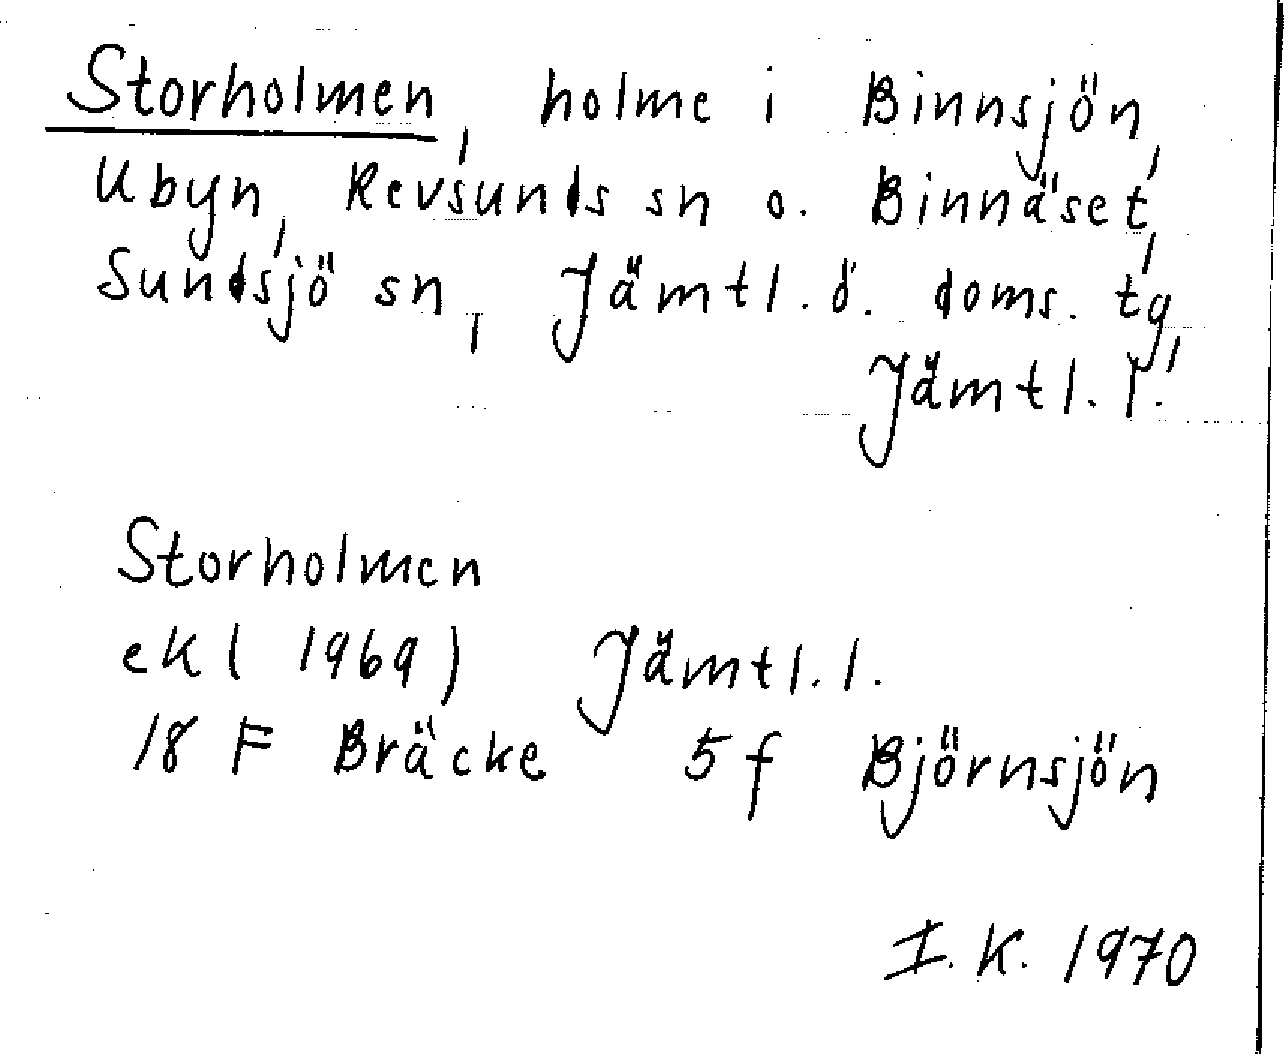 Storholmen, holme i Binnsjön,
Ubyn, Revsunds sn o. Binnäset,
Sundsjö sn, Jämtl. ö. doms. tg,
Jämtl. l.
Storholmen
ek (1969) Jämtl. l.
18 F Bräcke 5 f Björnsjön
I. K. 1970